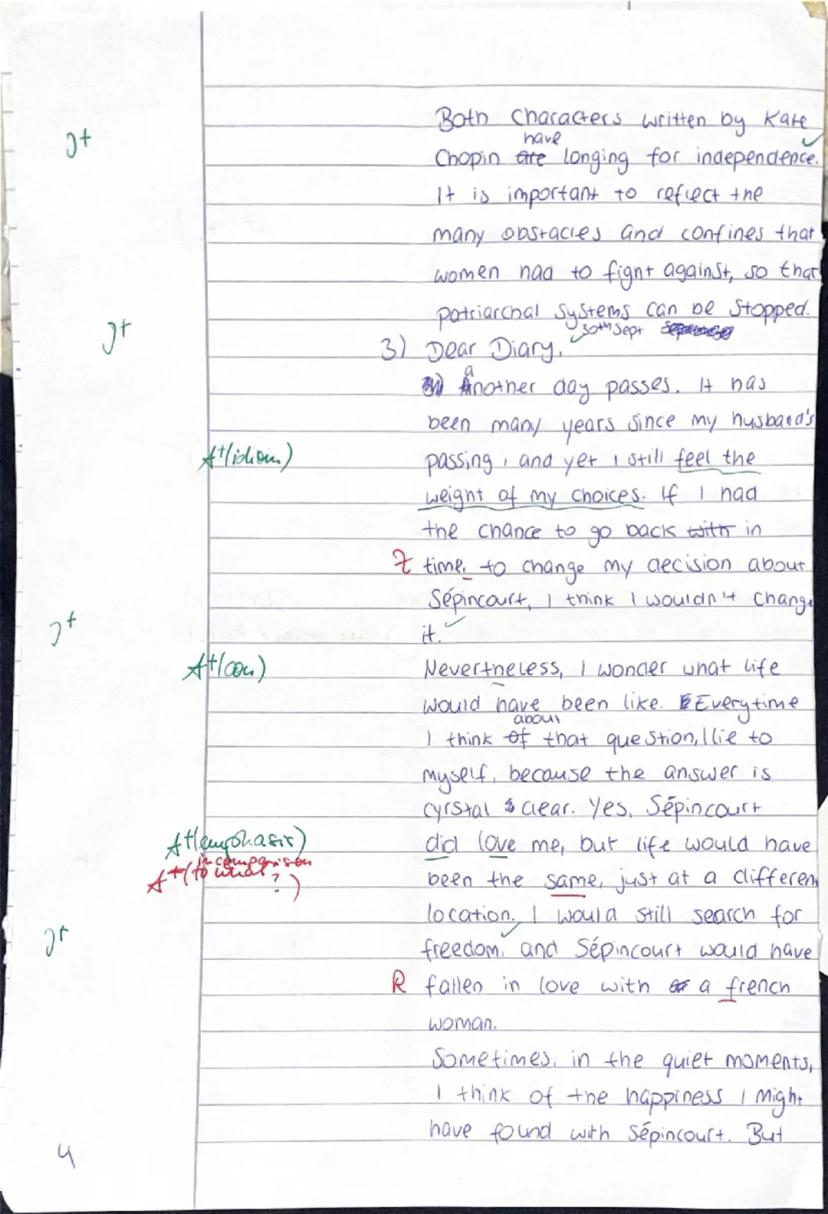 Both Characters written by Kate
J+
have
Chopin are longing for independence.
It is important to reflect the
many obstacles and confines that
women had to fight against, so that
patriarchal systems can be stopped.
J+
30th Sept
3) Dear Diary,
another day passes. It has
been many years since my husband's
A+(idiom) passing, and yet I still feel the
weight of my choices. If I had
the chance to go back with in
Z time, to change my decision about
Sépincourt, I think I wouldn't change
J+
it.
A+(con) Nevertheless, I wonder what life
would have been like. Everytime
about
I think of that question, I lie to
myself, because the answer is
cyrstal clear. Yes, Sépincourt
A+(emphasis) did love me, but life would have
in comparison
A+(to what?) been the same, just at a differen
location. I would still search for
J+
freedom, and Sépincourt would have
R fallen in love with a french
woman.
Sometimes, in the quiet moments,
I think of the happiness I might
have found with Sépincourt. But
4